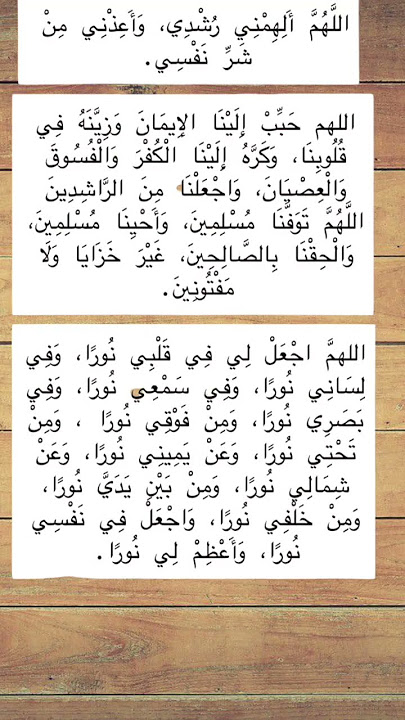 اللَّهُمَّ أَلِهِمْنِي رُشْدِي، وَأَعِذْنِي مِنْ
شَرِّ نَفْسِي.
اللهم حَبِّبْ إِلَيْنَا الإِيمَانَ وَزِيَّنَهُ فِي
قُلُوبِنَا، وَكَرَّهُ إِلَيْنَا الْكُفْرَ وَالْفُسُوقَ
وَالْعِصْيَانَ، وَاجْعَلْنَا مِنَ الرَّاشِدِينَ
اللَّهُمَّ تَوَفَّنَا مُسْلِمِينَ، وَأَحْيِنَا مُسْلِمِينَ،
وَالْحِقْنَا بِالصَّالِحِينَ، غَيْرَ خَزَايَا وَلَا
مَفْتُونِينَ.
اللهمَّ اجْعَلْ لِي فِي قَلْبِي نُورًا، وَفِي
لِسَانِي نُورًا، وَفِي سَمْعِي نُورًا، وَفِي
بَصَرِي نُورًا، وَمِنْ فَوْقِي نُورًا ، وَمِنْ
تَحْتِي نُورًا، وَعَنْ يَمِينِي نُورًا، وَعَنْ
شِمَالِي نُورًا، وَمِنْ بَيْنِ يَدَيَّ نُورًا،
وَمِنْ خَلْفِي نُورًا، وَاجْعَلْ فِي نَفْسِي
نُورًا، وَأَعْظِمْ لِي نُورًا.